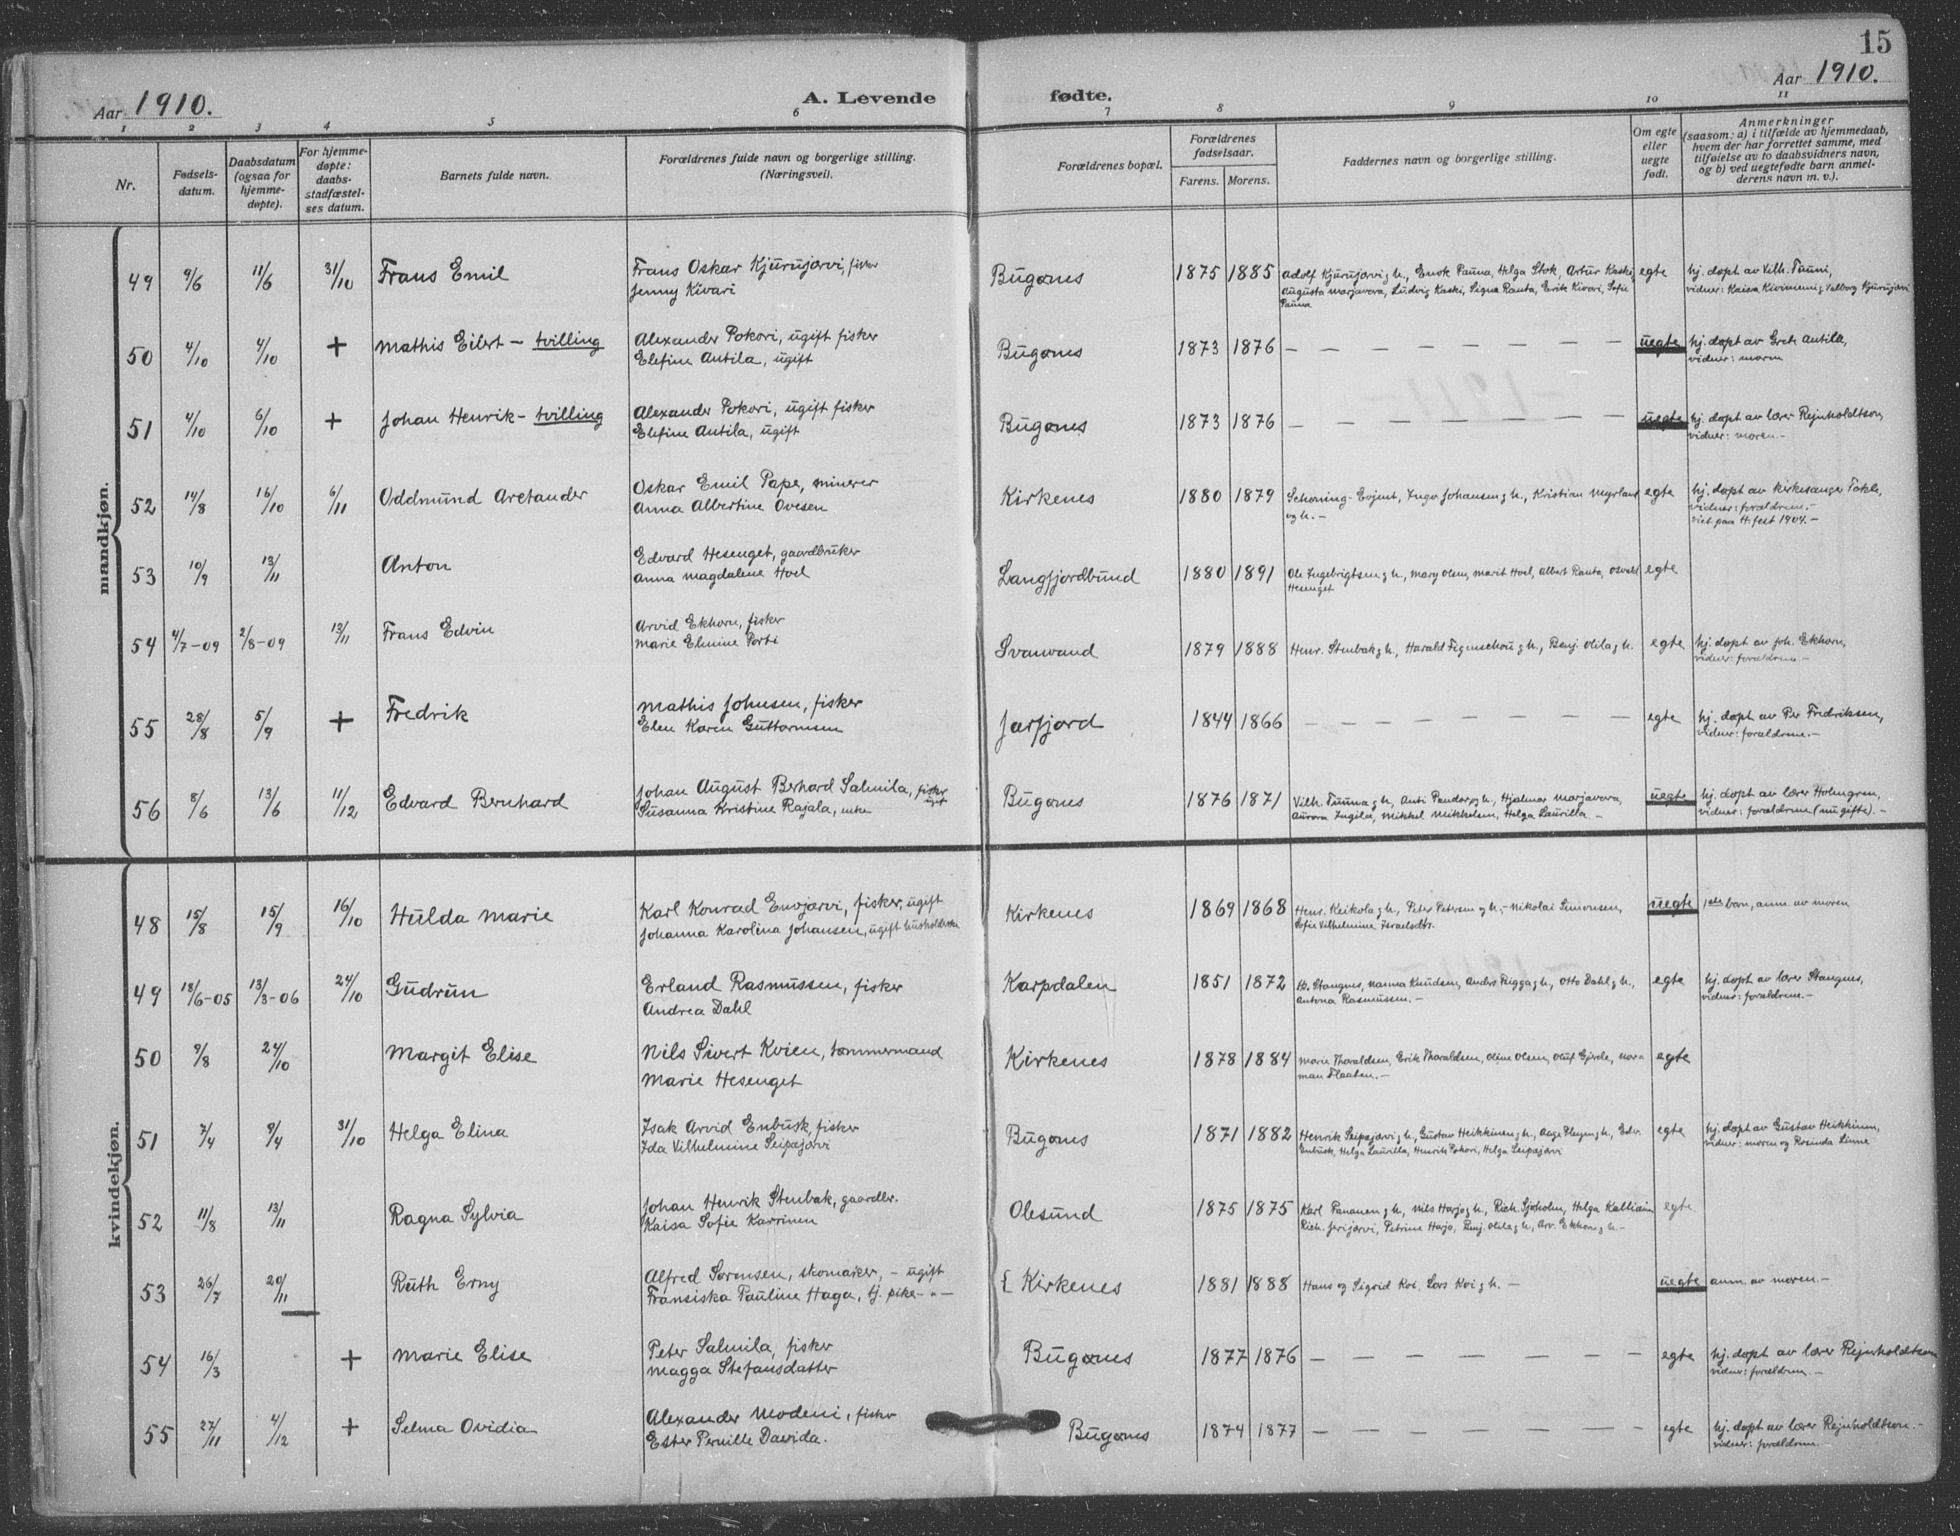 15
Aar 1910. A. Levende fødte. Aar 1910.
1 2 3 4 5 6 7 8 9 10 11
Nr.
Fødsels-
datum.
Daabsdatum
(ogsaa for
hjemme-
døpte).
For hjemme-
døpte:
daabs-
stadfæstel-
ses datum.
Barnets fulde navn.
Forældrenes fulde navn og borgerlige stilling.
(Næringsvei).
Forældrenes bopæl.
Forældrenes
fødselsaar.
Farens. Morens.
Faddernes navn og borgerlige stilling.
Om egte
eller
uegte
født.
Anmerkninger
(saasom: a) i tilfælde av hjemmedaab,
hvem der har forrettet samme, med
tilføielse av to daabsvidners navn,
og b) ved uegtefødte barn anmel-
derens navn m. v.).
mandkjøn.
49 9/6 11/6 31/10 Frans Emil
Frans Oskar Kjurujarvi, fisker
Jenny Kivari
Bugønes 1875 1885
Adolf Kjurujarvi g h., Enok Pauna, Helga Stok, Artur Kaski,
Augusta Marjavara, Ludvig Kaski, Signe Ranta, Erik Kivari, Sofie
Pauna
egte
hj. døpt av Vilh. Tuuni,
vidner: Kaisa Kiviniemi g Valborg Kjurujarvi
50 4/10 4/10 + Mathis Eilert - tvilling
Alexander Pokori, ugift fisker
Elefine Antila, ugift
Bugønes 1873 1876 — — — — — — — — — uegte
hj. døpt av Grete Antila,
vidner: moren
51 4/10 6/10 + Johan Henrik - tvilling
Alexander Pokori, ugift fisker
Elefine Antila, ugift
Bugønes 1873 1876 — — — — — — — — — uegte
hj. døpt av lærer Rejnholdtson,
vidner: moren.-
52 14/8 16/10 6/11 Oddmund Arctander
Oskar Emil Pape, minerer
Anna Albertine Ovesen
Kirkenes 1880 1879
Schøning- Evjent, Inga Johansen g h., Kristian Myrland
og h. -
egte
hj. døpt av kirkesanger Takle,
vidner: forældrene.-
viet paa H.fest 1904. -
53 10/9 13/11 Anton
Edvard Hesenget, gaardbruker
Anna Magdalene Hoel
Langfjordbund 1880 1891
Ole Ingebrigtsen g h., Mary Olsen, Marit Hoel, Albert Ranta, Osvald
Hesenget
egte
54 4/7-09 2/8-09 13/11 Frans Edvin
Arvid Ekhorn, fisker
Marie Elmine Porti
Svanvand 1879 1888
Henr. Stenbak g h., Harald Figenschou g h., Benj. Olila g h.
egte
hj. døpt av Joh. Ekhorn,
vidner: forældrene.-
55 28/8 5/9 + Fredrik
Mathis Johnsen, fisker
Elen Karen Guttormsen
Jarfjord 1844 1866 — — — — — — — — — egte
hj. døpt av Per Fredriksen,
vidner: forældrene.-
56 8/6 13/6 11/12 Edvard Bernhard
Johan August Berhard Salmila, fisker
ugift
Susanna Kristine Rajala, enke
Bugønes 1876 1871
Vilh. Tuuna g h., Anti Pandarg h., Hjalmar Marjavara,
Aurora Ingila, Mikkel Mikkelsen, Helga Laurilla.-
uegte
hj. døpt av lærer Holmgren,
vidner: forældrene (nu gifte). -
kvindekjøn.
48 15/8 15/9 16/10 Hulda Marie
Karl Konrad Envjarvi, fisker, ugift
Johanna Karolina Johansen, ugift husholderske
Kirkenes 1869 1868
Henr. Keikola g h., Peter Petersen og h,- Nikolai Simonsen,
Sofie Vilhelmine Israelsdtr.
uegte
1ste barn, anm. av moren
49 18/6-05 13/3-06 24/10 Gudrun
Erland Rasmussen, fisker
Andrea Dahl
Karpdalen 1851 1872
H. Stangnes, Nanna Knudsen, Anders Rigga g h., Otto Dahl g h.,
Antona Rasmussen. -
egte
hj. døpt av lærer Stangnes,
vidner: forældrene.-
50 9/8 24/10 Margit Elise
Nils Sivert Kvien, tømmermand
Marie Hesenget
Kirkenes 1878 1884
Marie Thoraldsen, Erik Thoraldsen, Oline Olsen, Oluf Gjerde, Nor-
man Flaaten.-
egte
51 7/4 9/4 31/10 Helga Elina
Isak Arvid Enbusk, fisker
Ida Vilhelmine Seipajarvi
Bugønes 1871 1882
Henrik Seipajarvi g h., Gustav Heikkinen g h., Aage Fleyen g h., Edv.
Enbusk, Helga Laurilla, Henrik Pokori, Helga Seipajarvi
egte
hj. døpt av Gustav Heikkinen,
vidner: moren og Rosinda Linne
52 11/8 13/11 Ragna Sylvia
Johan Henrik Stenbak, gaardbr.
Kaisa Sofie Karrinen
Olesund 1875 1875
Karl Pananen g h., Nils Harjo g h., Rich. Sjøholm, Helga Kalliain
Rich. Jerijarvi, Petrine Harjo, Benj. Olila g h., Arv. Ekhorn g h.-
egte
53 26/7 20/11 Ruth Erny
Alfred Sørensen, skomaker, - ugift
Fransiska Pauline Haga, tj. pike - " -
{ Kirkenes 1881 1888
Hans og Sigrid Koi, Lars Koi g h. -
uegte
anm. av moren.-
54 16/3 + Marie Elise
Peter Salmila, fisker
Magga Stefansdatter
Bugønes 1877 1876 — — — — — — — — egte
hj. døpt av lærer Rejnholdtson
vidner: forældrene.-
55 27/11 4/12 + Selma Ovidia
Alexander Modeni, fisker
Ester Pernille Davida.
Bugønes 1874 1877 — — — — — — — — egte
hj. døpt av lærer Rejnholdtson.-
vidner: forældrene.-